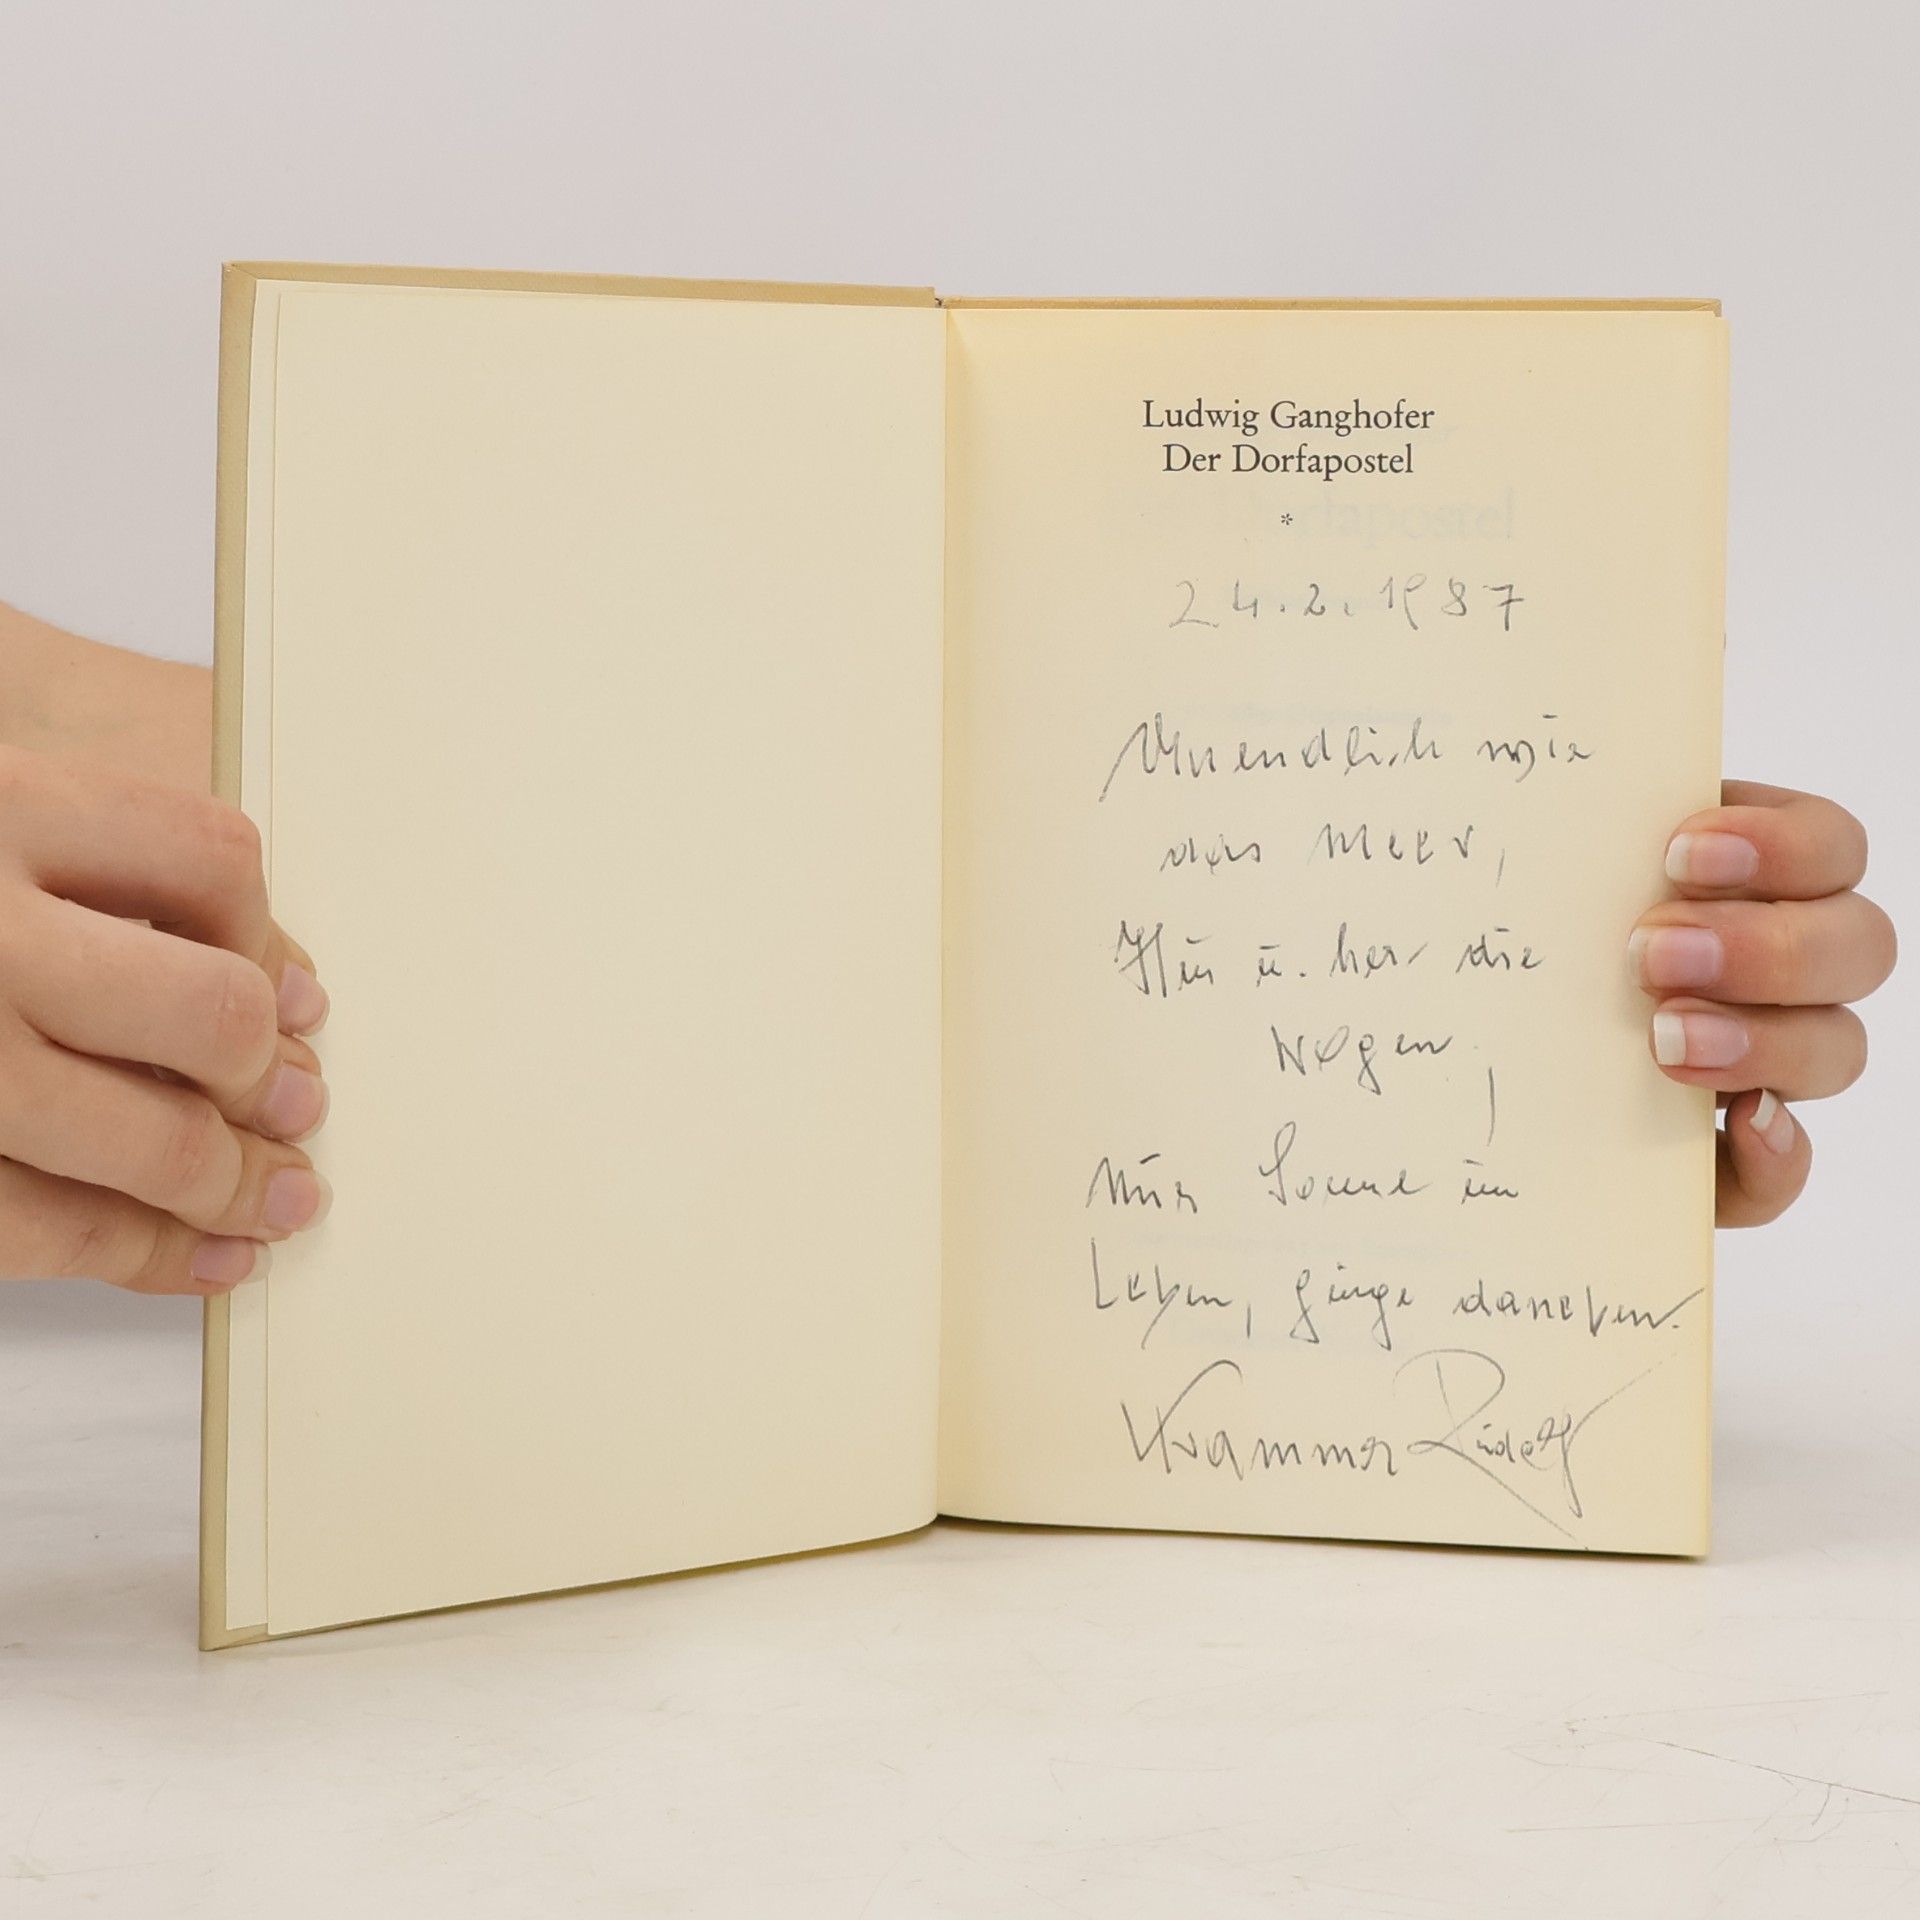 Ludwig Ganghofer
Der Dorfapostel
*
24.2.1987
Unendlich wie
das Meer,
Hin u. her die
Wogen,
Nur Sonne im
Leben, ginge daneben.
Krammer Rudolf